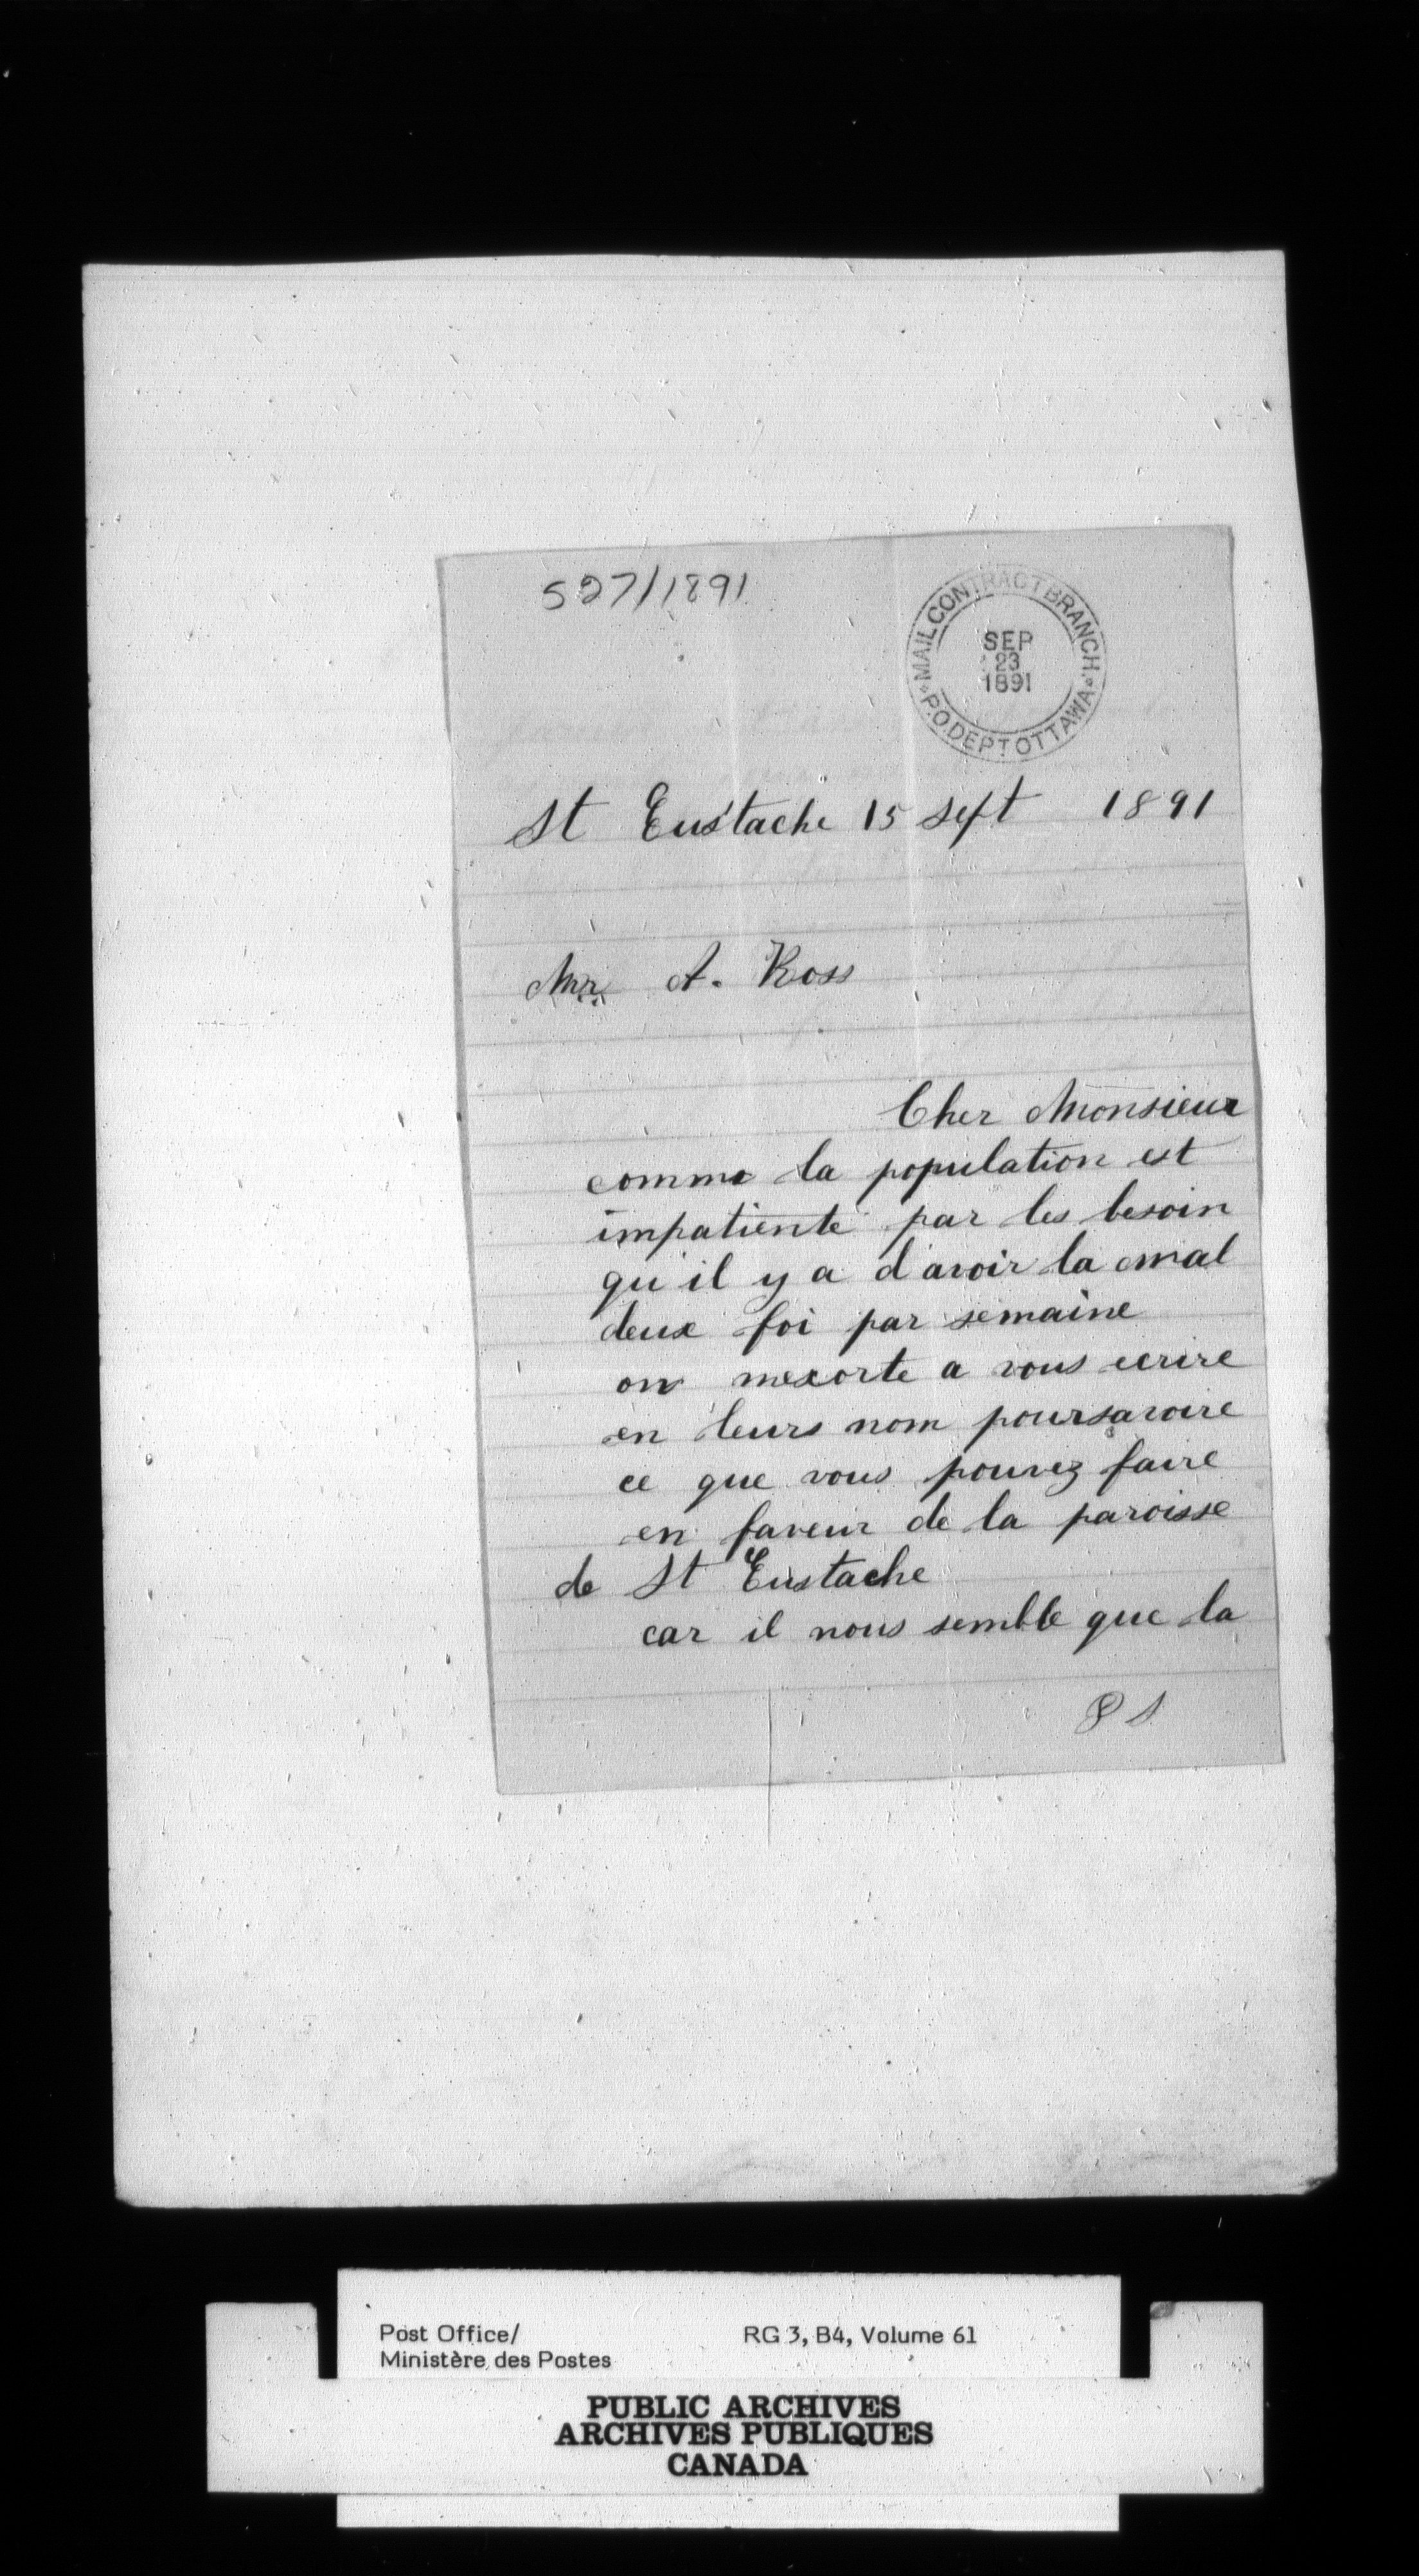 527/1891
MAIL CONTRACT BRANCH
SEP
23
1891
P.O. DEPT OTTAWA
St Eustache 15 sept 1891
Mr. A. Ross
Cher Monsieur
comme la population est
impatiente par les besoin
qu'il y a d'avoir la mal
deux foi par semaine
on mexorte a vous ecrire
en leurs nom poursavoire
ce que vous pouvez faire
en faveur de la paroisse
de St Eustache
car il nous semble que la
P S
Post Office/
Ministère des Postes
RG 3, B4, Volume 61
PUBLIC ARCHIVES
ARCHIVES PUBLIQUES
CANADA